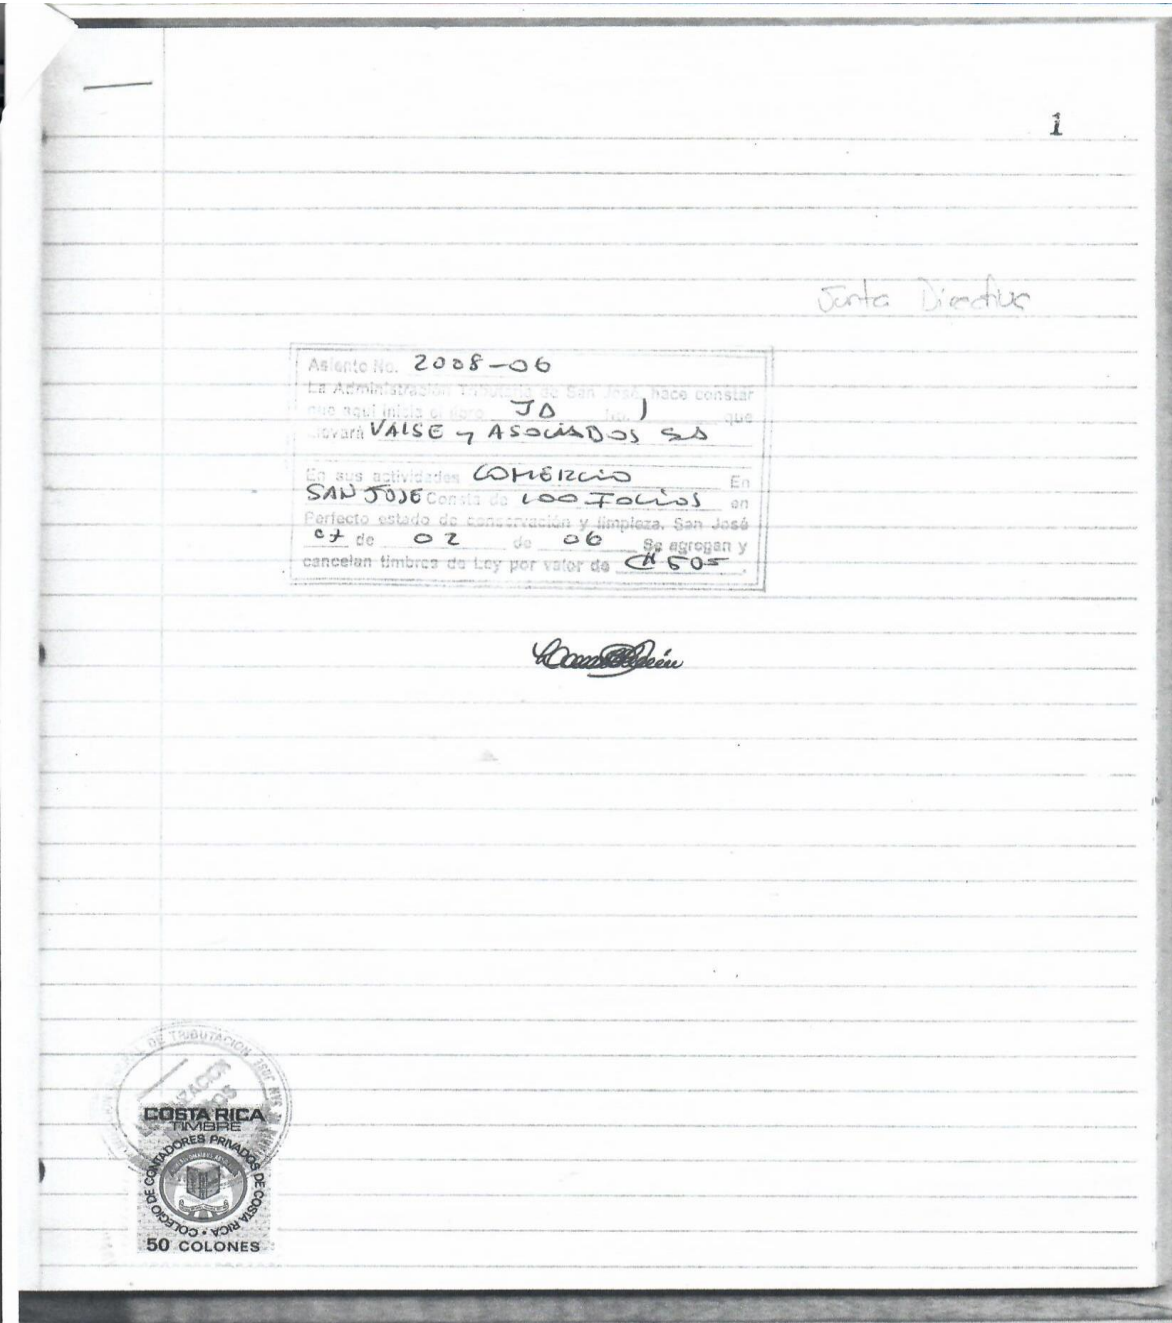 1
Junta Directiva
Asiento No. 2008-06
La Administración Tributaria de San José, hace constar
que aquí inicia el libro JD No. 1 que
llevará VALSE y ASOCIADOS SA
En sus actividades COMERCIO En
SAN JOSE Consta de 100 FOLIOS en
Perfecto estado de conservación y limpieza. San José
07 de 02 de 06 Se agregan y
cancelan timbres de Ley por valor de
DE TRIBUTACION
SAN JOSE
COSTA RICA
TIMBRE
COLEGIO DE CONTADORES PRIVADOS DE COSTA RICA
50 COLONES